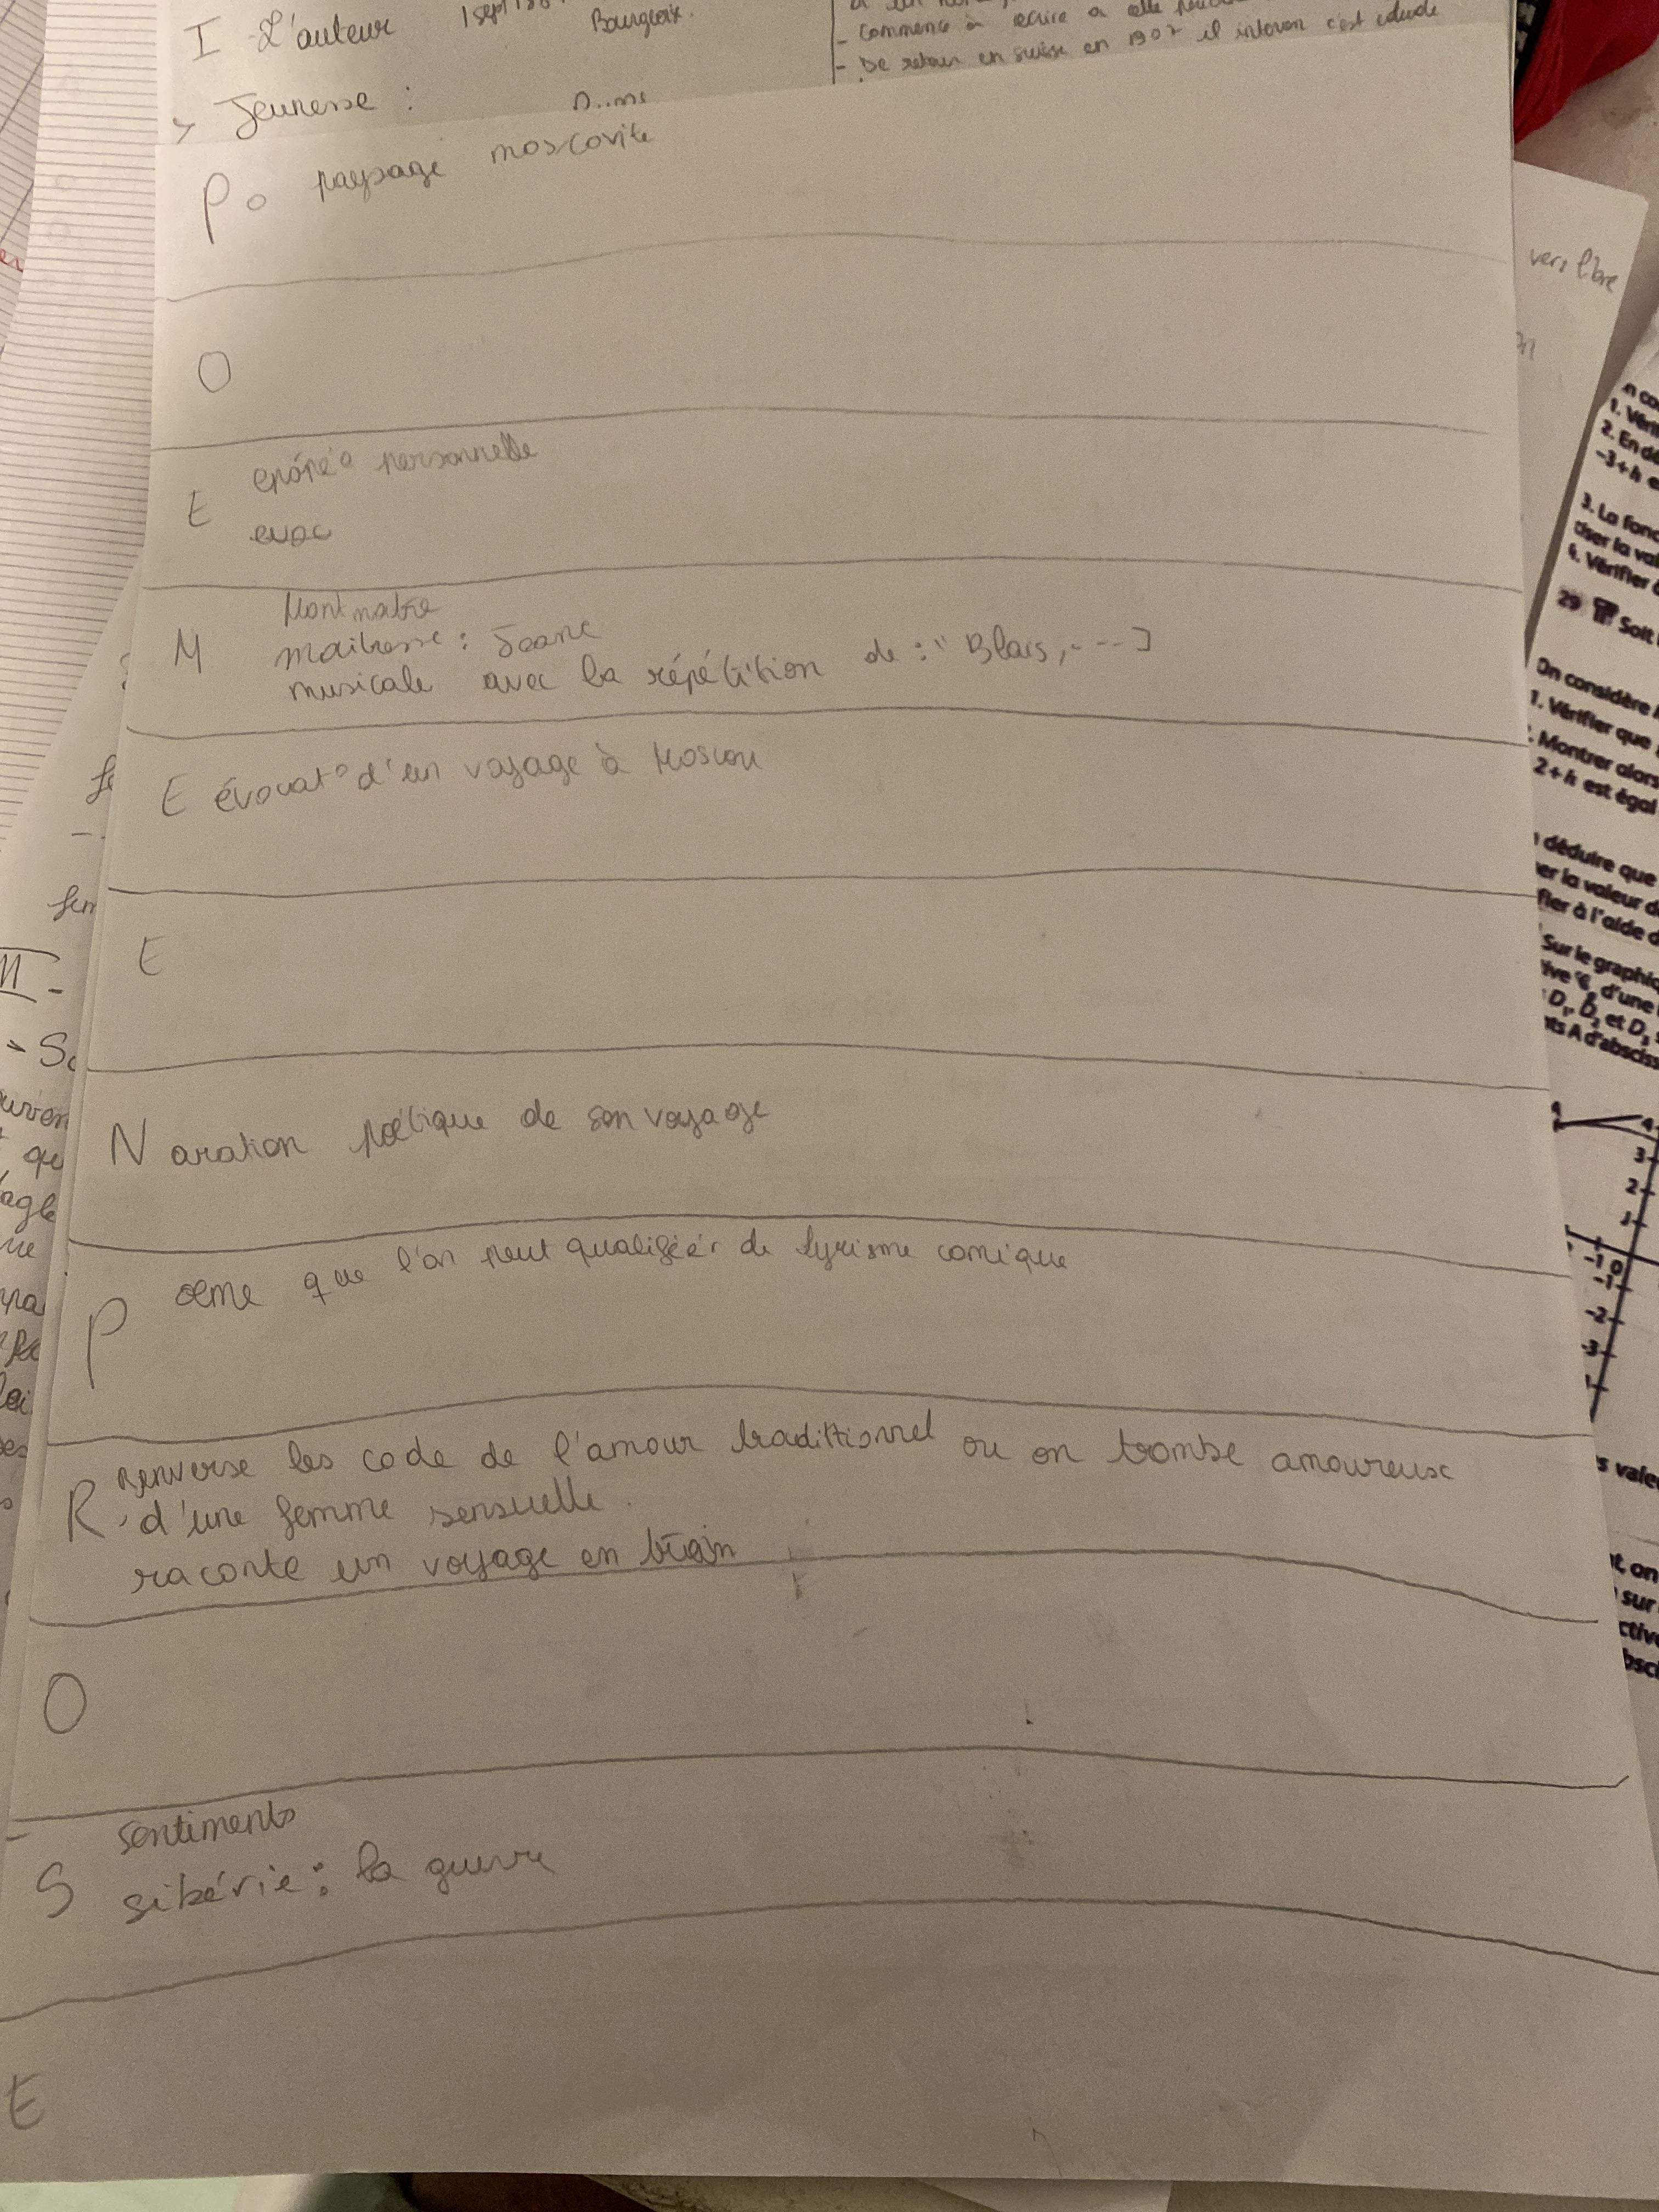 I L'auteur
Bourgeois.
- commence à écrire a
- De retour en suisse en 1907 il c'est
> Jeunesse :
Po paysage moscovite
vers libre
O
E epópé° personnelle
evoc
Montmatre
M maitresse : Jeanne
musicale avec la répétition de : " Blais, - - - ]
E évocat° d'un voyage à Moscou
E
N aration poétique de son voyage
P oeme que l'on peut qualifiér de lyrisme comique
R renverse les code de l'amour tradittionnel ou on tombe amoureux
d'une femme sensuelle.
raconte un voyage en train
O
sentiments
S sibérie : la guerre
E
1. Véri
2. En dé
-3+h e
3. La fonc
liser la val
4. Vérifier
29 Soit
On considère
1. Vérifier que
Montrer alors
2+h est égal
déduire que
er la valeur d
fier à l'aide d
Sur le graphiq
d'une
D₁, D₂ et D₃
nts A d'absciss
4
3
2
1
-1 0
-1
-2
-3
s vale
t, on
sur
ctive
bsci